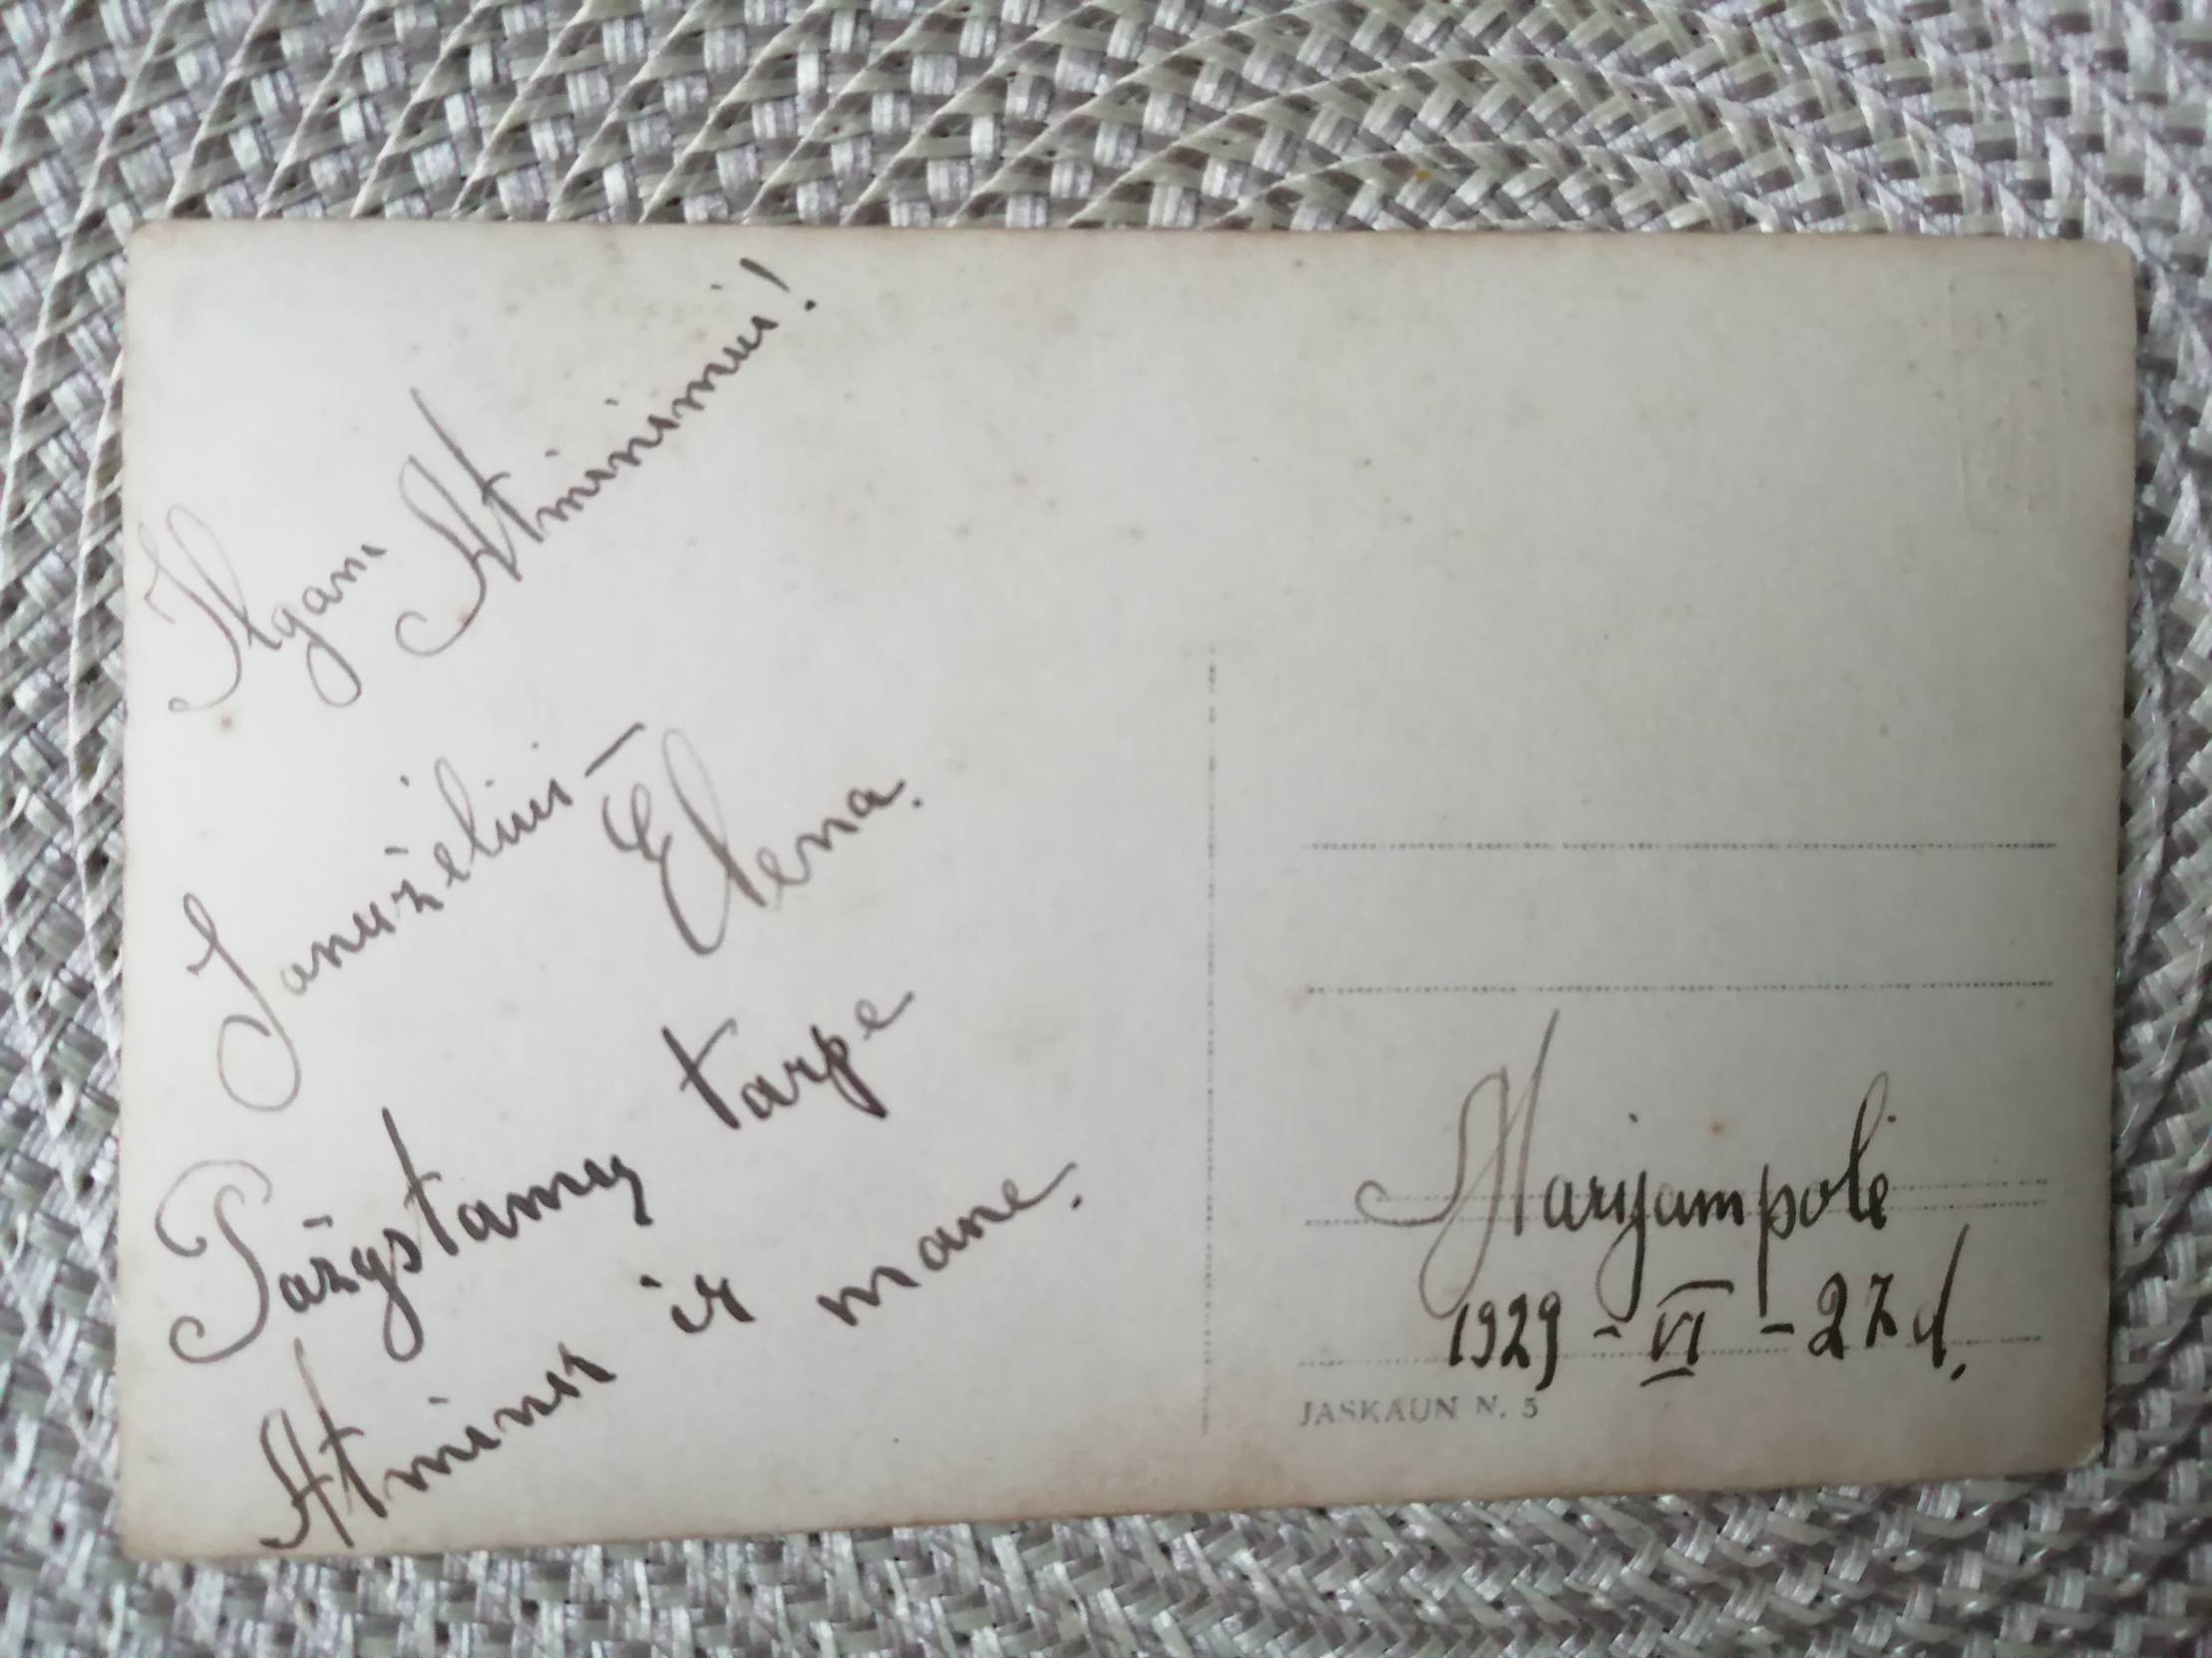 Ilgam Atminimui!
Januželiui –
Elena.
Pažystamų tarpe
Atmink ir mane.
Marijampolė
1929 - VI - 27 d.
JASKAUN N. 5